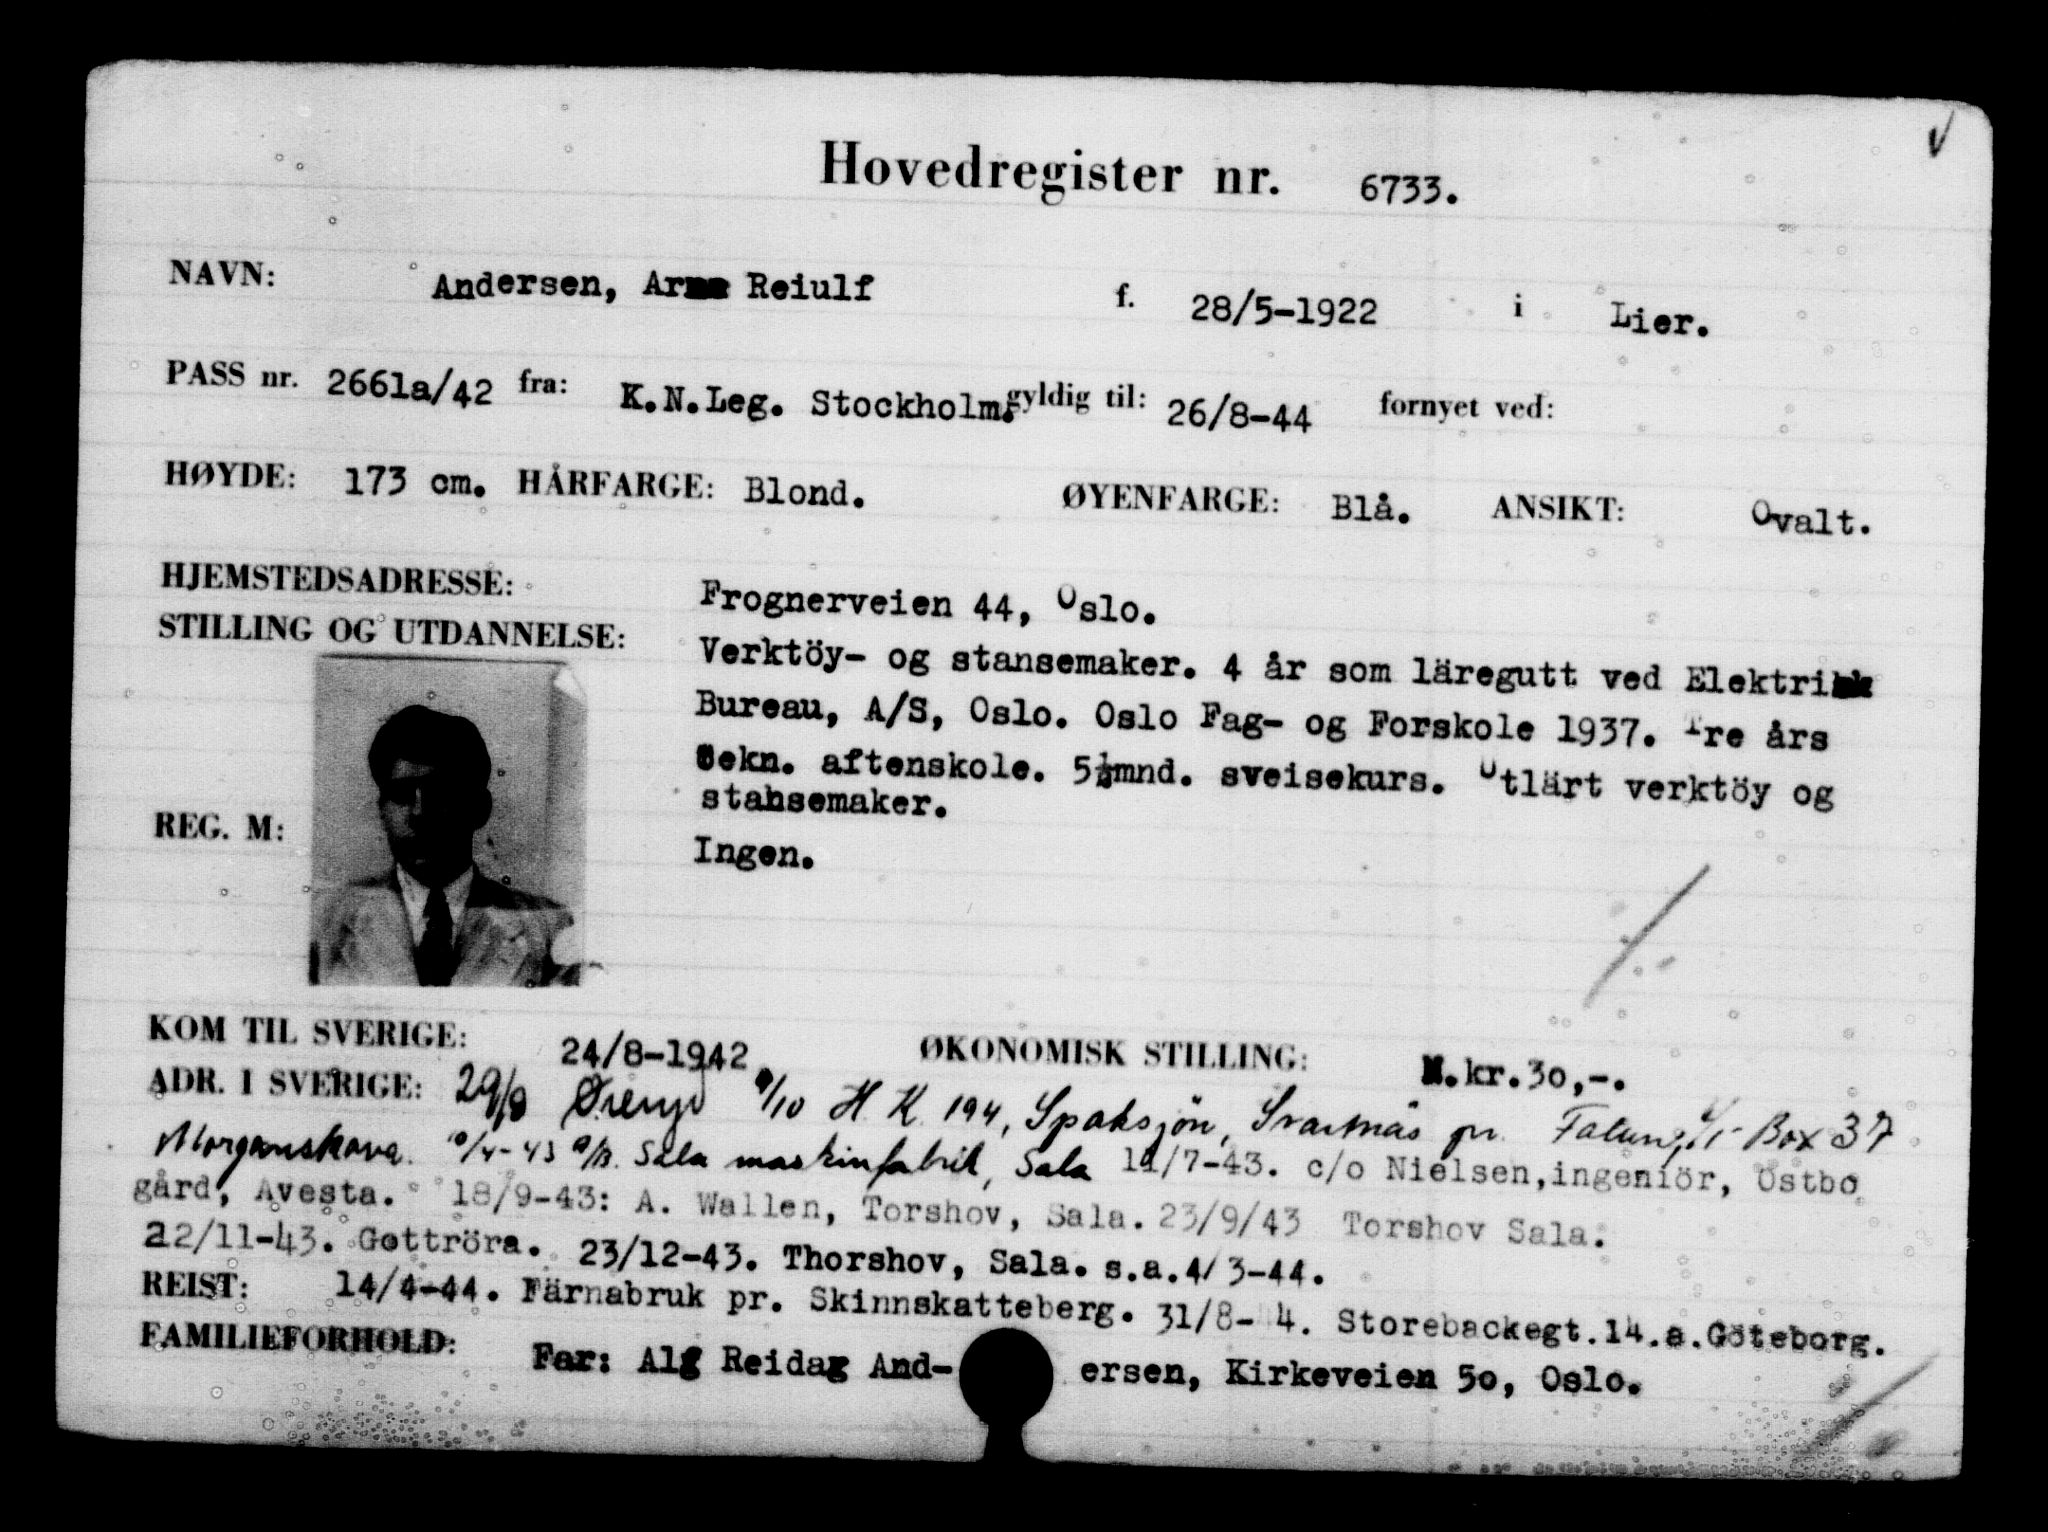 Hovedregister nr. 6733.
NAVN: Andersen, Arne Reiulf f. 28/5-1922 i Lier.
PASS nr. 2661a/42 fra: K.N.Leg. Stockholm. gyldig til: 26/8-44 fornyet ved:
HØYDE: 173 cm. HÅRFARGE: Blond. ØYENFARGE: Blå. ANSIKT: Ovalt.
HJEMSTEDSADRESSE: Frognerveien 44, Oslo.
STILLING OG UTDANNELSE: Verktöy- og stansemaker. 4 år som läregutt ved Elektrisk
Bureau, A/S, Oslo. Oslo Fag- og Forskole 1937. Tre års
tekn. aftenskole. 5½mnd. sveisekurs. Utlärt verktöy og
stansemaker.
REG. M: Ingen.
KOM TIL SVERIGE: 24/8-1942 ØKONOMISK STILLING: N.kr.30,-.
ADR. I SVERIGE: 29/8 Øreryd 9/10 H K 194, Spaksjön, Svartnäs pr. Falun, Box 37
10/4-43 Sala maskinfabrik, Sala 11/7-43. c/o Nielsen,ingeniör, Östbo
gård, Avesta. 18/9-43: A. Wallen, Torshov, Sala. 23/9/43 Torshov Sala.
22/11-43. Gottröra. 23/12-43. Thorshov, Sala. s.a.4/3-44.
REIST: 14/4-44. Färnabruk pr. Skinnskatteberg. 31/8-44. Storebackegt.14.a.Göteborg.
FAMILIEFORHOLD: Far: Alf Reidar And- ersen, Kirkeveien 50, Oslo.